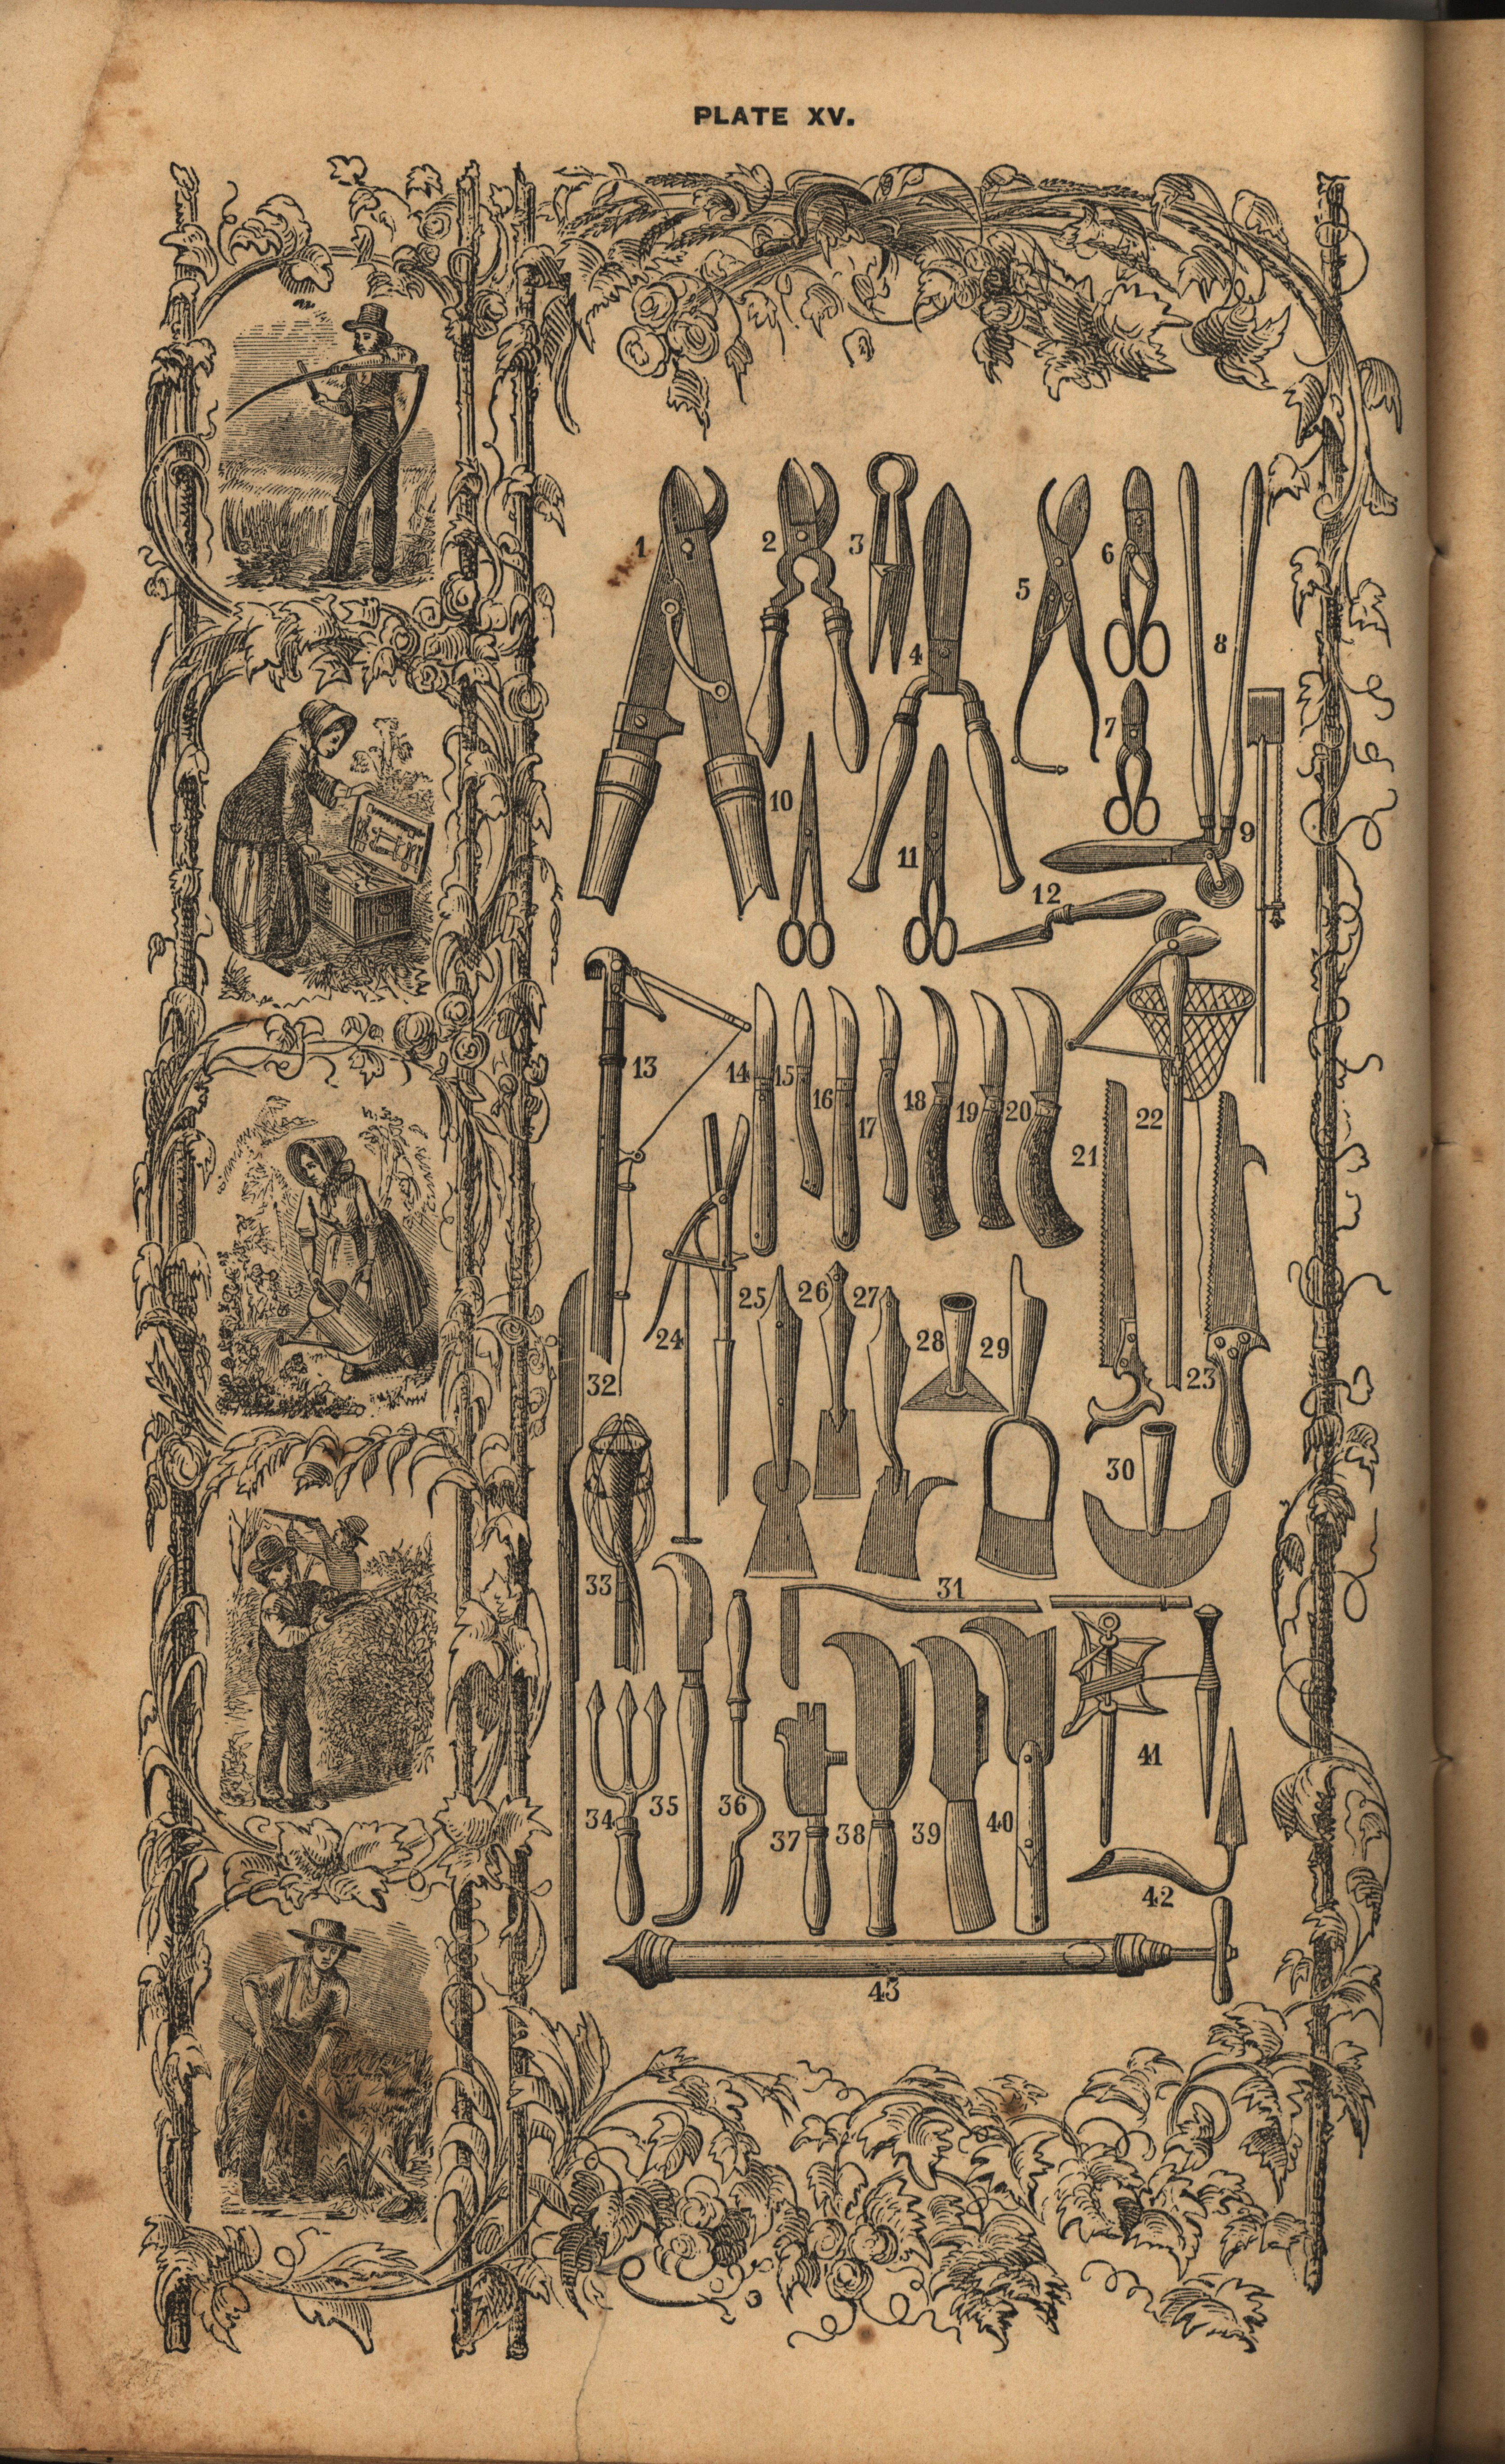 PLATE XV.
1
2
3
4
5
6
7
8
9
10
11
12
13
14
15
16
17
18
19
20
21
22
23
24
25
26
27
28
29
30
31
32
33
34
35
36
37
38
39
40
41
42
43